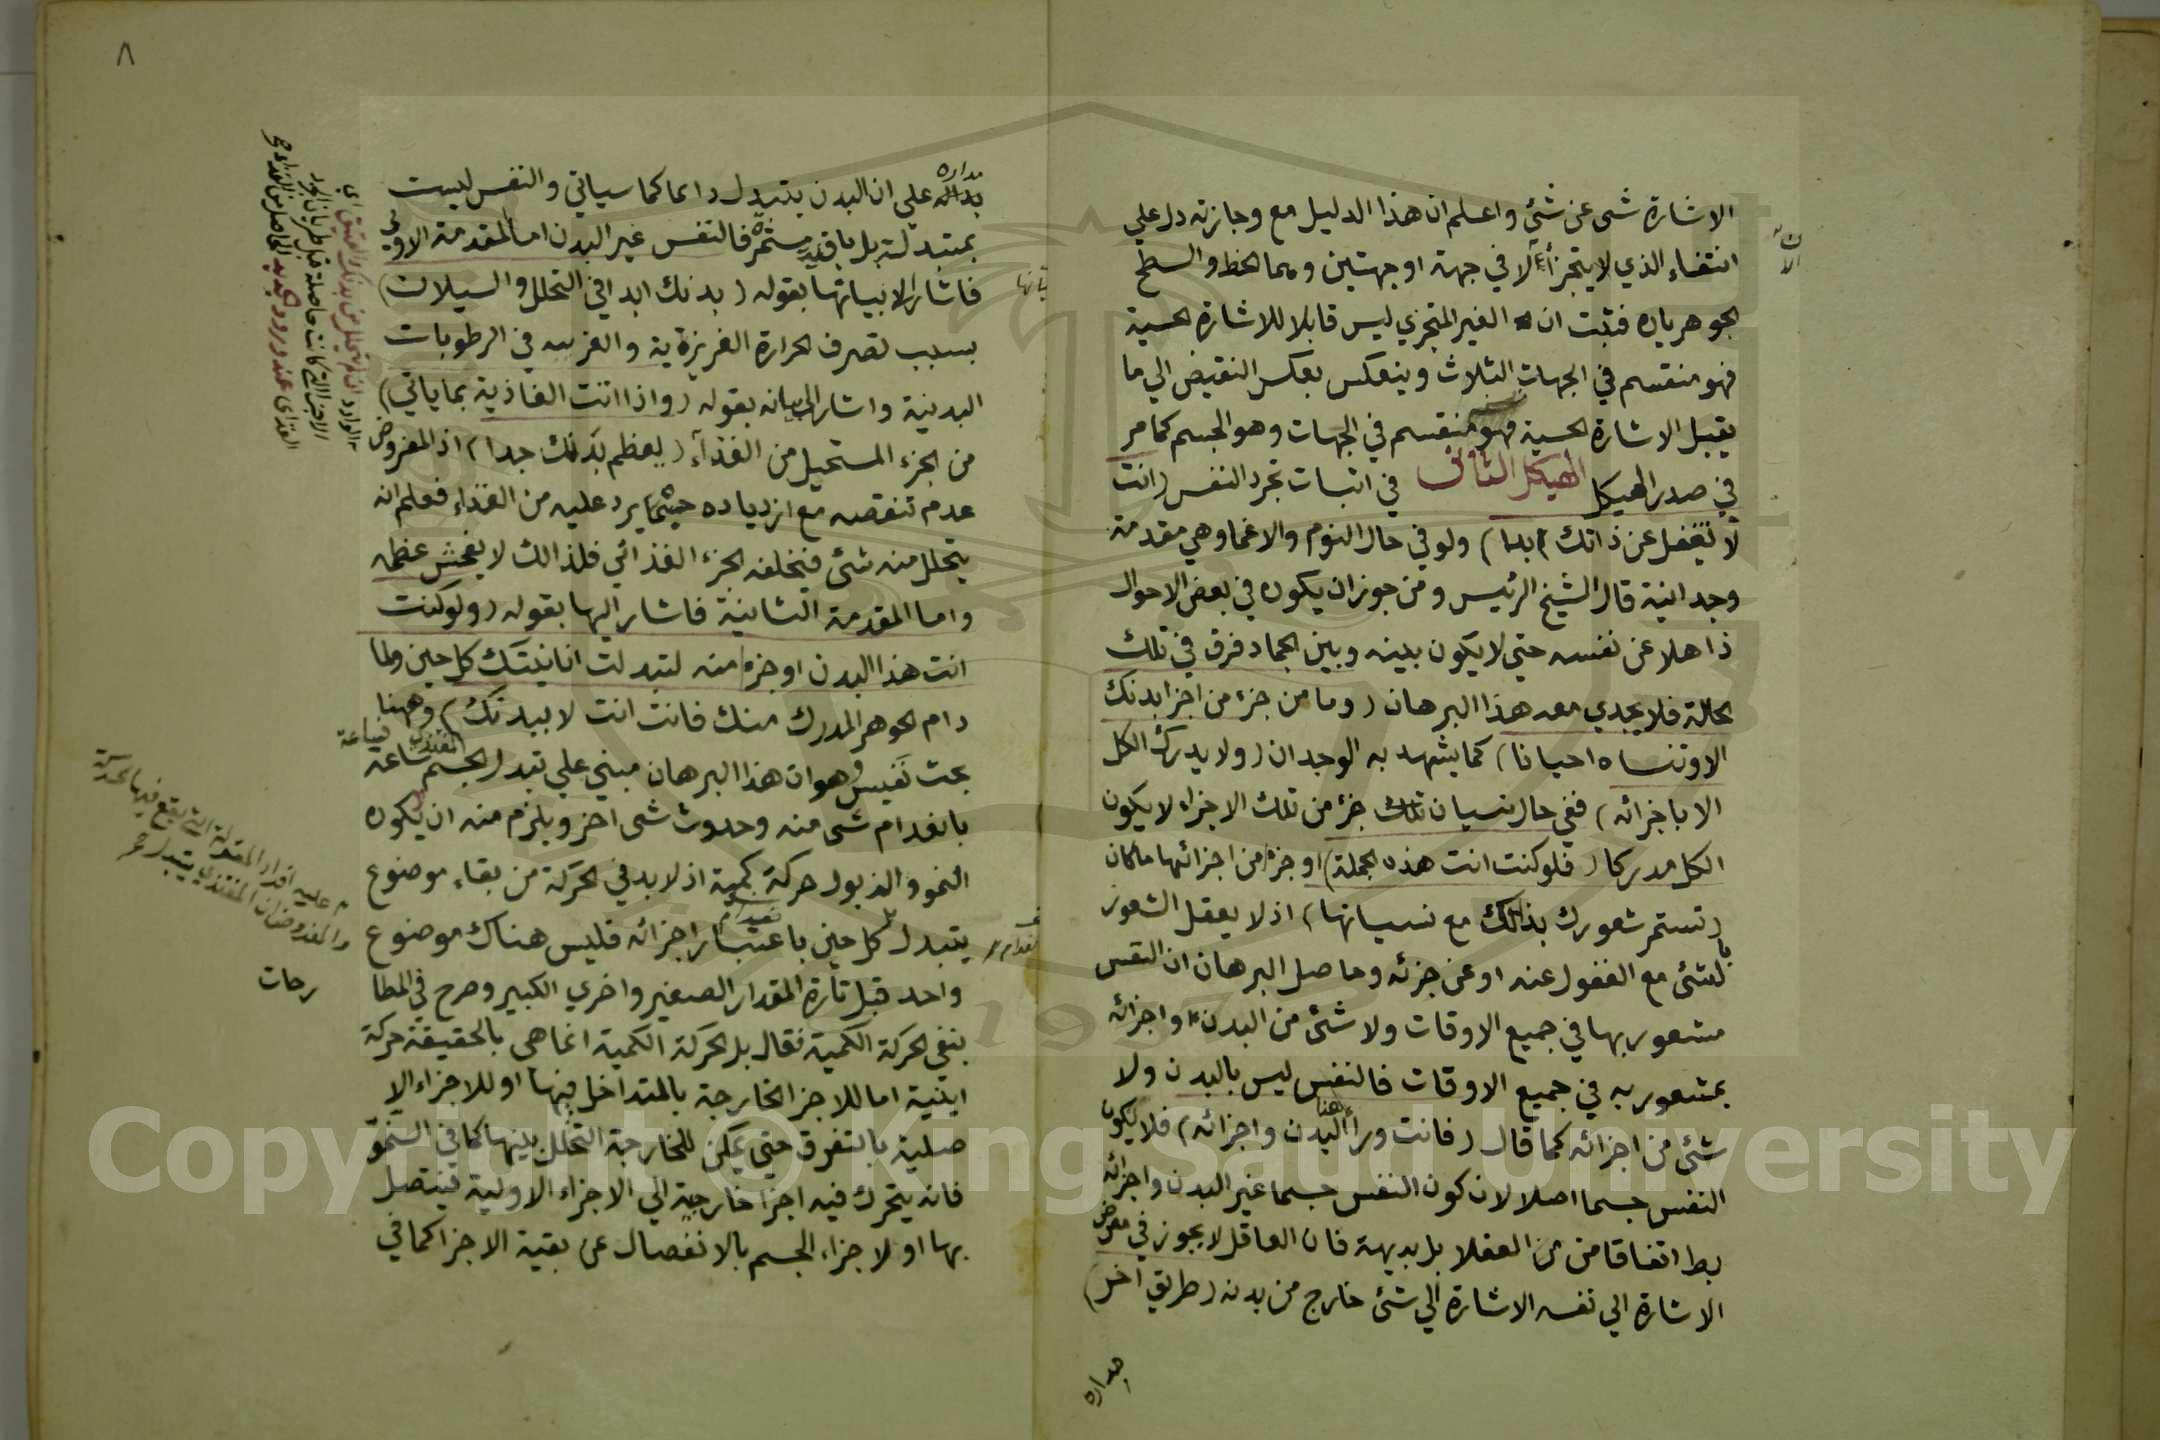 الاشارة شى عن شئ واعلم ان هذا الدليل مع وجازته دل علي
انتفاء الذي لا يتجزأ الا في جهة او جهتين وهما الخط والسطح
الجوهريان فثبت ان الغير المتجزي ليس قابلا للاشارة الحسية
فهو منقسم في الجهات الثلاث وينعكس بعكس النقيض الي ما
يقبل الاشارة الحسية فهو منقسم في الجهات وهو الجسم كما مر
في صدر الهيكل الهيكل الثانى في اثبات تجرد النفس (انت
لا تغفل عن ذاتك ابدا) ولو في حال النوم والاغما وهي مقدمة
وجدانية قال الشيخ الرئيس ومن جوز ان يكون في بعض الاحوال
ذاهلا عن نفسه حتي لا يكون بينه وبين الجماد فرق في تلك
الحالة فلا يجدي معه هذا البرهان (وما من جزء من اجزا بدنك
الا وتنساه احيانا) كما يشهد به الوجدان (ولا يدرك الكل
الا باجزائه) ففي حال نسيان تلك جزء من تلك الاجزاء لا يكون
الكل مدركا (فلو كنت انت هذه الجملة) او جزء من اجزائها ماكان
(تستمر شعورك بذاتك مع نسيانها) اذ لا يعقل الشعور
بالشئ مع الغفول عنه او عن جزئه وحاصل البرهان ان النفس
مشعور بها في جميع الاوقات ولا شئ من البدن واجزائه
بمشعور به في جميع الاوقات فالنفس ليس بالبدن ولا
شئ من اجزائه كما قال (فانت وراء هذا البدن واجزائه) فلا يكون
النفس جسما اصلا لان كون النفس جسما غير البدن واجزائه
بط اتفاقا من العقلا بل بديهة فان العاقل لا يجوز في معرض
الاشارة الي نفسه الاشارة الي شئ خارج من بدنه (طريق اخر)
مداره
علي ان البدن يتبدل دائما كما سياتي والنفس ليست
بمتبدلة بل باقية مستمرة فالنفس غير البدن اما المقدمة الاولي
فاشار الا بيانها بقوله (بدنك ابدا في التحلل والسيلان)
بسبب تصرف الحرارة الغريزية والغريبه في الرطوبات
البدنية واشار الي بيانه بقوله (واذا اتت الغاذية بما ياتي)
من الجزء المستحيل من الغذاء (يعظم بدنك جدا) اذ المفروض
عدم تنقصه مع ازدياده حيثما يرد عليه من الغذاء فعلم انه
يتحلل منه شئ فتخلفه الجزء الغذائي فلذالك لا يفحش عظمه
واما المقدمة الثانية فاشار اليها بقوله (ولو كنت
انت هذا البدن او جزء منه لتبدلت انانيتك كل حين ولما
دام الجوهر المدرك منك فانت انت لا ببدنك) وههنا
بحث نفيس وهو ان هذا البرهان مبني علي تبدل الجسم المغتذي ساعة فساعة
بانعدام شى منه وحدوث شى اخر ويلزم منه ان يكون
النمو والذبول حركة كمية اذ لا بد في الحركة من بقاء موضوع
يتبدل كل حين باعتبار اجزائه فليس هناك موضوع
واحد قبل تارة المقدار الصغير واخري الكبير وصرح في المطا
رحات
بنفي الحركة الكمية فقال بل الحركة الكمية انما هي بالحقيقة حركة
اينية اما للاجزا الخارجة بالمتداخل فيها او للاجزاء الا
صلية بالتفرق حتي يمكن للخارجة التخلل بينها كما في النمو
فانه يتحرك فيه اجزا خارجة الي الاجزاء الاولية فيتصل
بها او لاجزاء الجسم بالانفصال عن بقية الاجزا كما في
٨